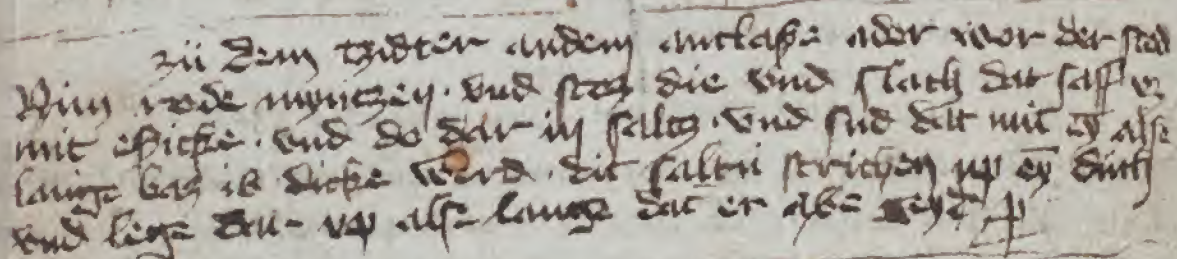 zü dem zidter andem antlasse ader wor der sted
Nim rode myntzen · vnd stos die vnd slach dat saff vz
mit essicke · vnd do dar in saltz · vnd sud dat mit ey alse
lange bas is dicke werd · dit saltu strichen vp ey duch
vnd lege dar vp alse lange dat er abe geyt